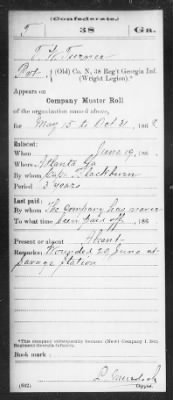 (Confederate.)
T 38 Ga.
T. W. Turner
Pvt., (Old) Co. N, 38 Reg't Georgia Inf.
(Wright Legion).*
Appears on
Company Muster Roll
of the organization named above,
for May 15 to Oct 31, 186
Enlisted:
When June 19, 186
Where Atlanta Ga
By whom Cap.
Period 3 years
Last paid:
By whom The Company has never
To what time been paid off, 186
Present or absent Absent
Remarks: Wounded 29 June at
Savage Station
*This company subsequently became (New) Company
Regiment Georgia Infantry.
Book mark:
(642)
Copyist.